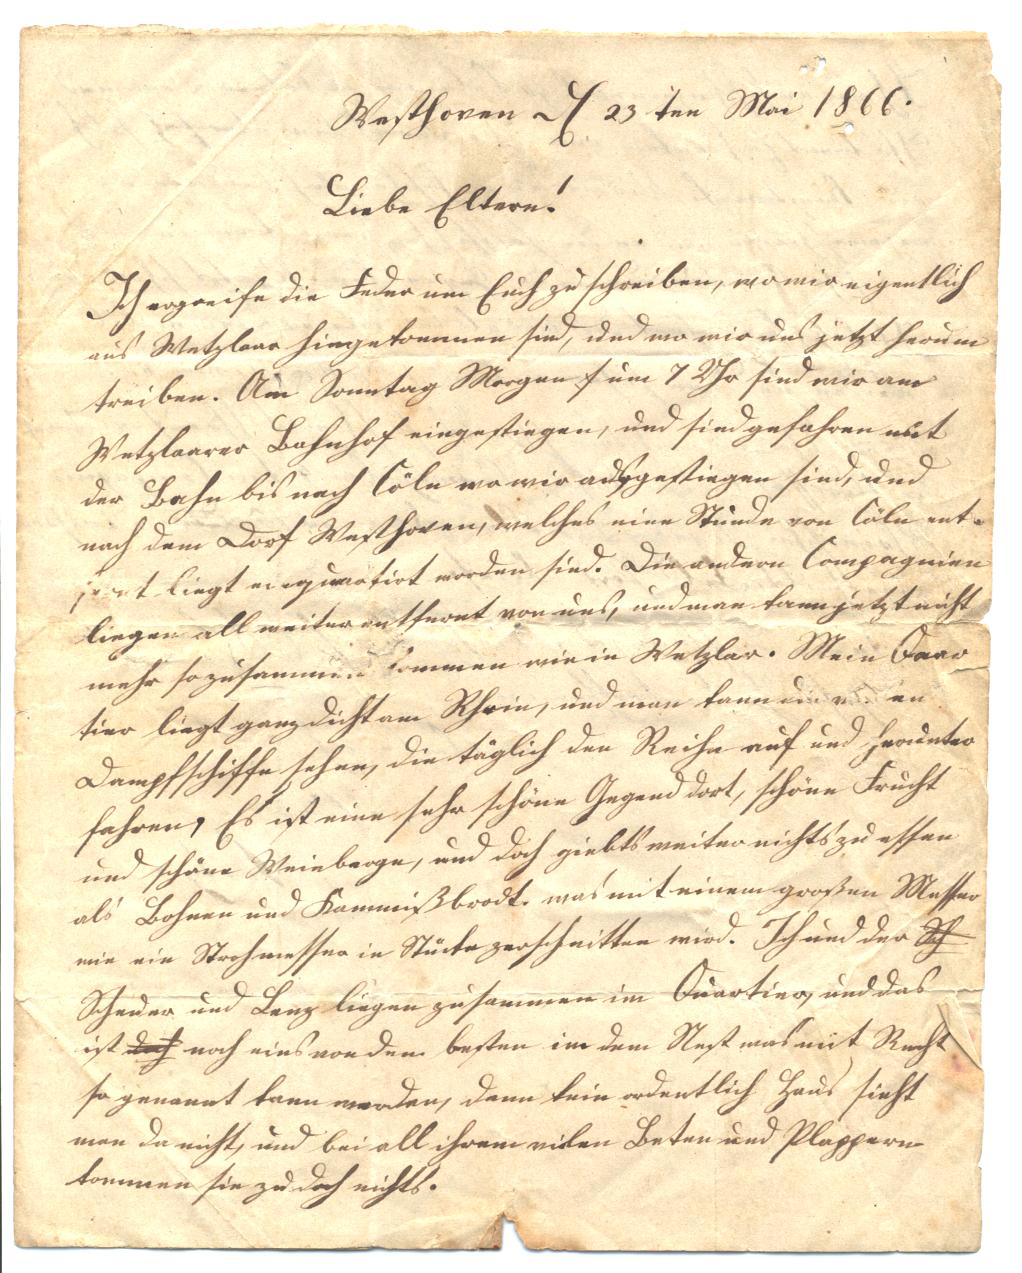 Westhoven d 23ten Mai 1866.
Liebe Eltern!
Ich ergreife die Feder um Euch zu schreiben, wo wir eigentlich
aus Wetzlaar hingekommen sind, und wo wir uns jetzt herum
treiben. Am Sonntag Morgen um 7 Uhr sind wir am
Wetzlaarer Bahnhof eingestiegen, und sind gefahren mit
der Bahn bis nach Cöln wo wir ausgestiegen sind, und
nach dem Dorf Westhoven, welches eine Stunde von Cöln ent-
fernt liegt einquartirt worden sind. Die andern Compagnien
liegen all weiter entfernt von uns, und man kann jetzt nicht
mehr so zusammen kommen wie in Wetzlar. Mein Quar
tier liegt ganz dicht am Rhein, und man kann die
Dampfschiffe sehen, die täglich den Reihn auf und herunter
fahren, Es ist eine sehr schöne Gegend dort, schöne Frucht
und schöne Weinberge, und doch giebts weiter nichts zu essen
als Bohnen und Kammißbrodt. was mit einem großen Messer
wie ein Strohmesser in Stücke zerschnitten wird. Ich und der Sch
Scheuer und Lenz liegen zusammen im Quartier, und das
ist noch eins von den besten in dem Nest was mit Recht
so genannt kann werden, denn kein ordentlich Haus sieht
man da nicht, und bei all ihrem vielen Beten und Plappern
kommen sie zu doch nichts.